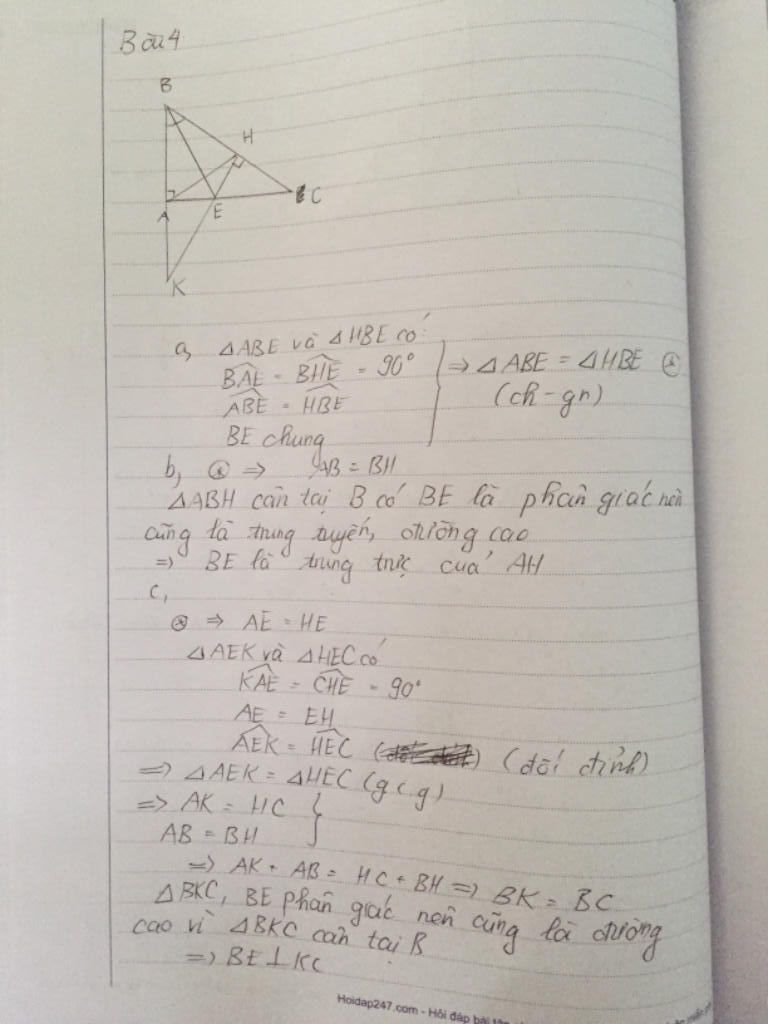 Bài 4
B
H
A
E
C
K
a, ΔABE và ΔHBE có:
BAE = BHE = 90°
ABE = HBE
BE chung
⇒ ΔABE = ΔHBE ⊛
(ch - gn)
b, ⊛ ⇒ AB = BH
ΔABH cân tại B có BE là phân giác nên
cũng là trung tuyến, đường cao
⇒ BE là trung trực của AH
c,
⊛ ⇒ AE = HE
ΔAEK và ΔHEC có
KAE = CHE = 90°
AE = EH
AEK = HEC (đối đỉnh)
⇒ ΔAEK = ΔHEC (g.c.g)
⇒ AK = HC
AB = BH
⇒ AK + AB = HC + BH ⇒ BK = BC
ΔBKC, BE phân giác nên cũng là đường
cao vì ΔBKC cân tại B
⇒ BE ⊥ KC
Hoidap247.com - Hỏi đáp bài tập